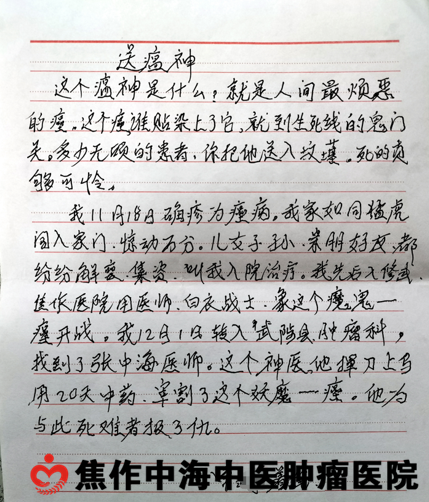 送瘟神
这个瘟神是什么？就是人间最烦恶
的癌。这个癌谁贴染上了它，就到生死线的鬼门
关。多少无顾的患者，你把他送入坟墓。死的真
够可怜。
我11月18日确疹为癌病。我家如同猛虎
闯入家门，惊动万分。儿女子孙、亲朋好友、都
纷纷解囊、集资、叫我入院治疗。我先后入修武、
焦作医院用医师、白衣战士、象这个魔鬼一
癌开战。我12月1日转入武陟县肿瘤科，
找到了张中海医师。这个神医，他挥刀上马
用20天中药、宰割了这个妖魔一癌。他为
与此死难者报了仇。
焦作中海中医肿瘤医院